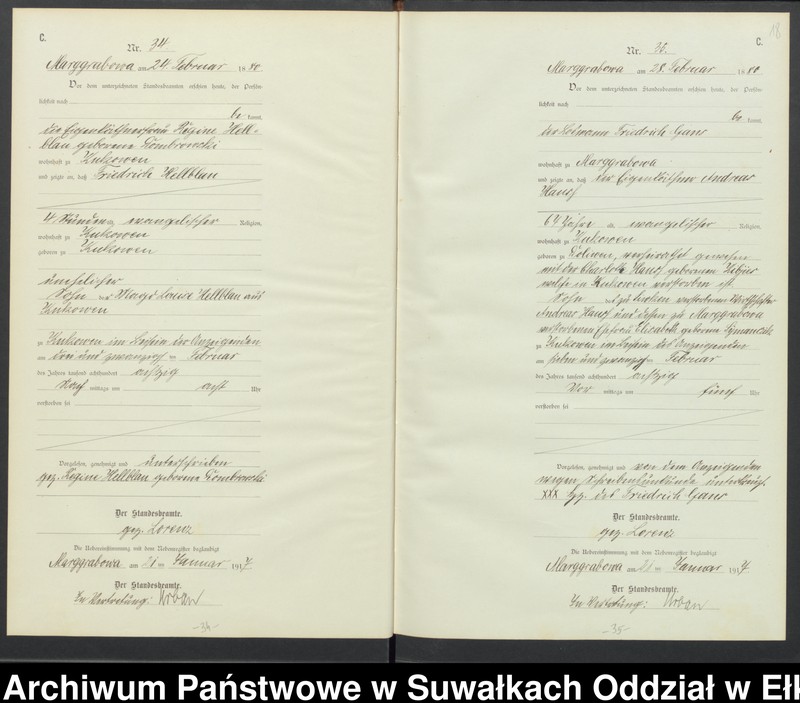 C.
Nr. 34
Marggrabowa am 24 Februar 1880
Vor dem unterzeichneten Standesbeamten erschien heute, der Persön-
lichkeit nach
be kannt,
die Eigenkäthnerfrau Regine Hell-
blau geborene Dombrowski
wohnhaft zu Kukowen
und zeigte an, daß Friedrich Hellblau
4 Stunden alt, evangelischer Religion,
wohnhaft zu Kukowen
geboren zu Kukowen
unehelicher
Sohn der Magd Louise Hellblau aus
Kukowen
zu Kukowen im Beisein der Anzeigenden
am drei und zwanzigsten Februar
des Jahres tausend achthundert achtzig
Nach mittags um acht Uhr
verstorben sei
Vorgelesen, genehmigt und unterschrieben
gez. Regine Hellblau geborene Dombrowski
Der Standesbeamte.
gez. Lorenz
Die Uebereinstimmung mit dem Nebenregister beglaubigt
Marggrabowa am 21 ten Januar 1917
Der Standesbeamte.
In Vertretung: Urban
-34-
18
C.
Nr. 35.
Marggrabowa am 28. Februar 1880
Vor dem unterzeichneten Standesbeamten erschien heute, der Persön-
lichkeit nach
be kannt,
der Losmann Friedrich Gans
wohnhaft zu Marggrabowa
und zeigte an, daß der Eigenkäthner Andreas
Hauch
64 Jahre alt, evangelischer Religion,
wohnhaft zu Kukowen
geboren zu verheirathet gewesen
mit der Charlotte Hauch geborenen
welche in Kukowen verstorben ist
Sohn des zu verstorbenen
Andreas Hauch und dessen zu Marggrabowa
verstorbenen Ehefrau Elisabeth geborene Symanczik
zu Kukowen im Beisein des Anzeigenden
am sieben und zwanzigsten Februar
des Jahres tausend achthundert achtzig
Vor mittags um fünf Uhr
verstorben sei
Vorgelesen, genehmigt und von dem Anzeigenden
wegen Schreibensunkunde unterkreuzt
XXX Hz. des Friedrich Gans
Der Standesbeamte.
gez. Lorenz
Die Uebereinstimmung mit dem Nebenregister beglaubigt
Marggrabowa am 21 ten Januar 1917
Der Standesbeamte.
In Vertretung: Urban
-35-
Archiwum Państwowe w Suwałkach Oddział w Ełk